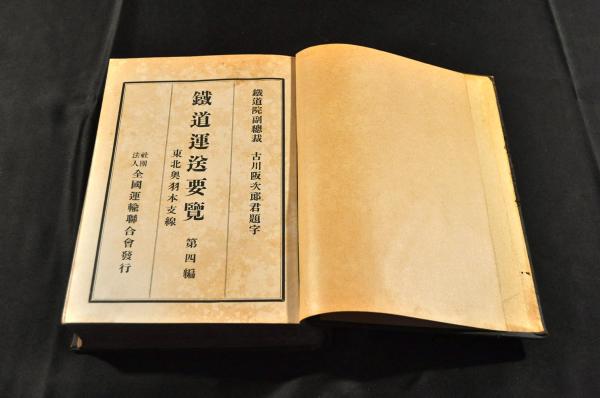 鐵道院副總裁 古川阪次郎君題字
鐵道運送要覽 第四編
東北奧羽本支線
社團法人 全國運輸聯合會發行